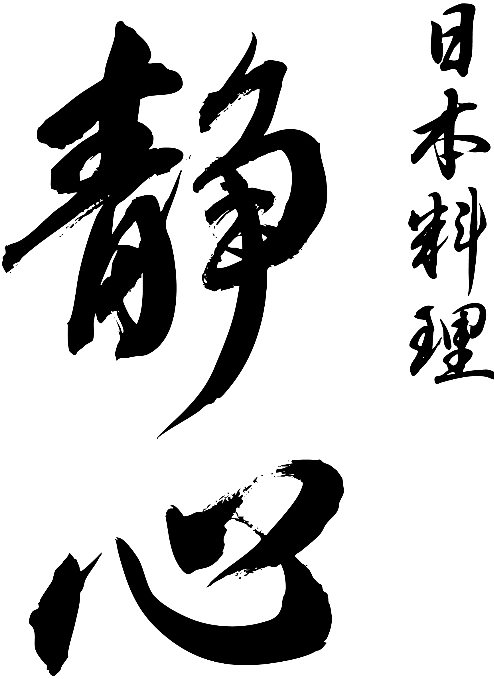 日本料理
静心